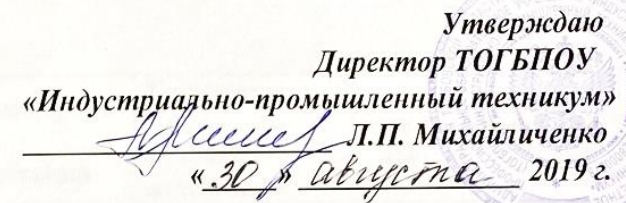 Утверждаю
Директор ТОГБПОУ
«Индустриально-промышленный техникум»
Л.П. Михайличенко
«30» августа 2019 г.